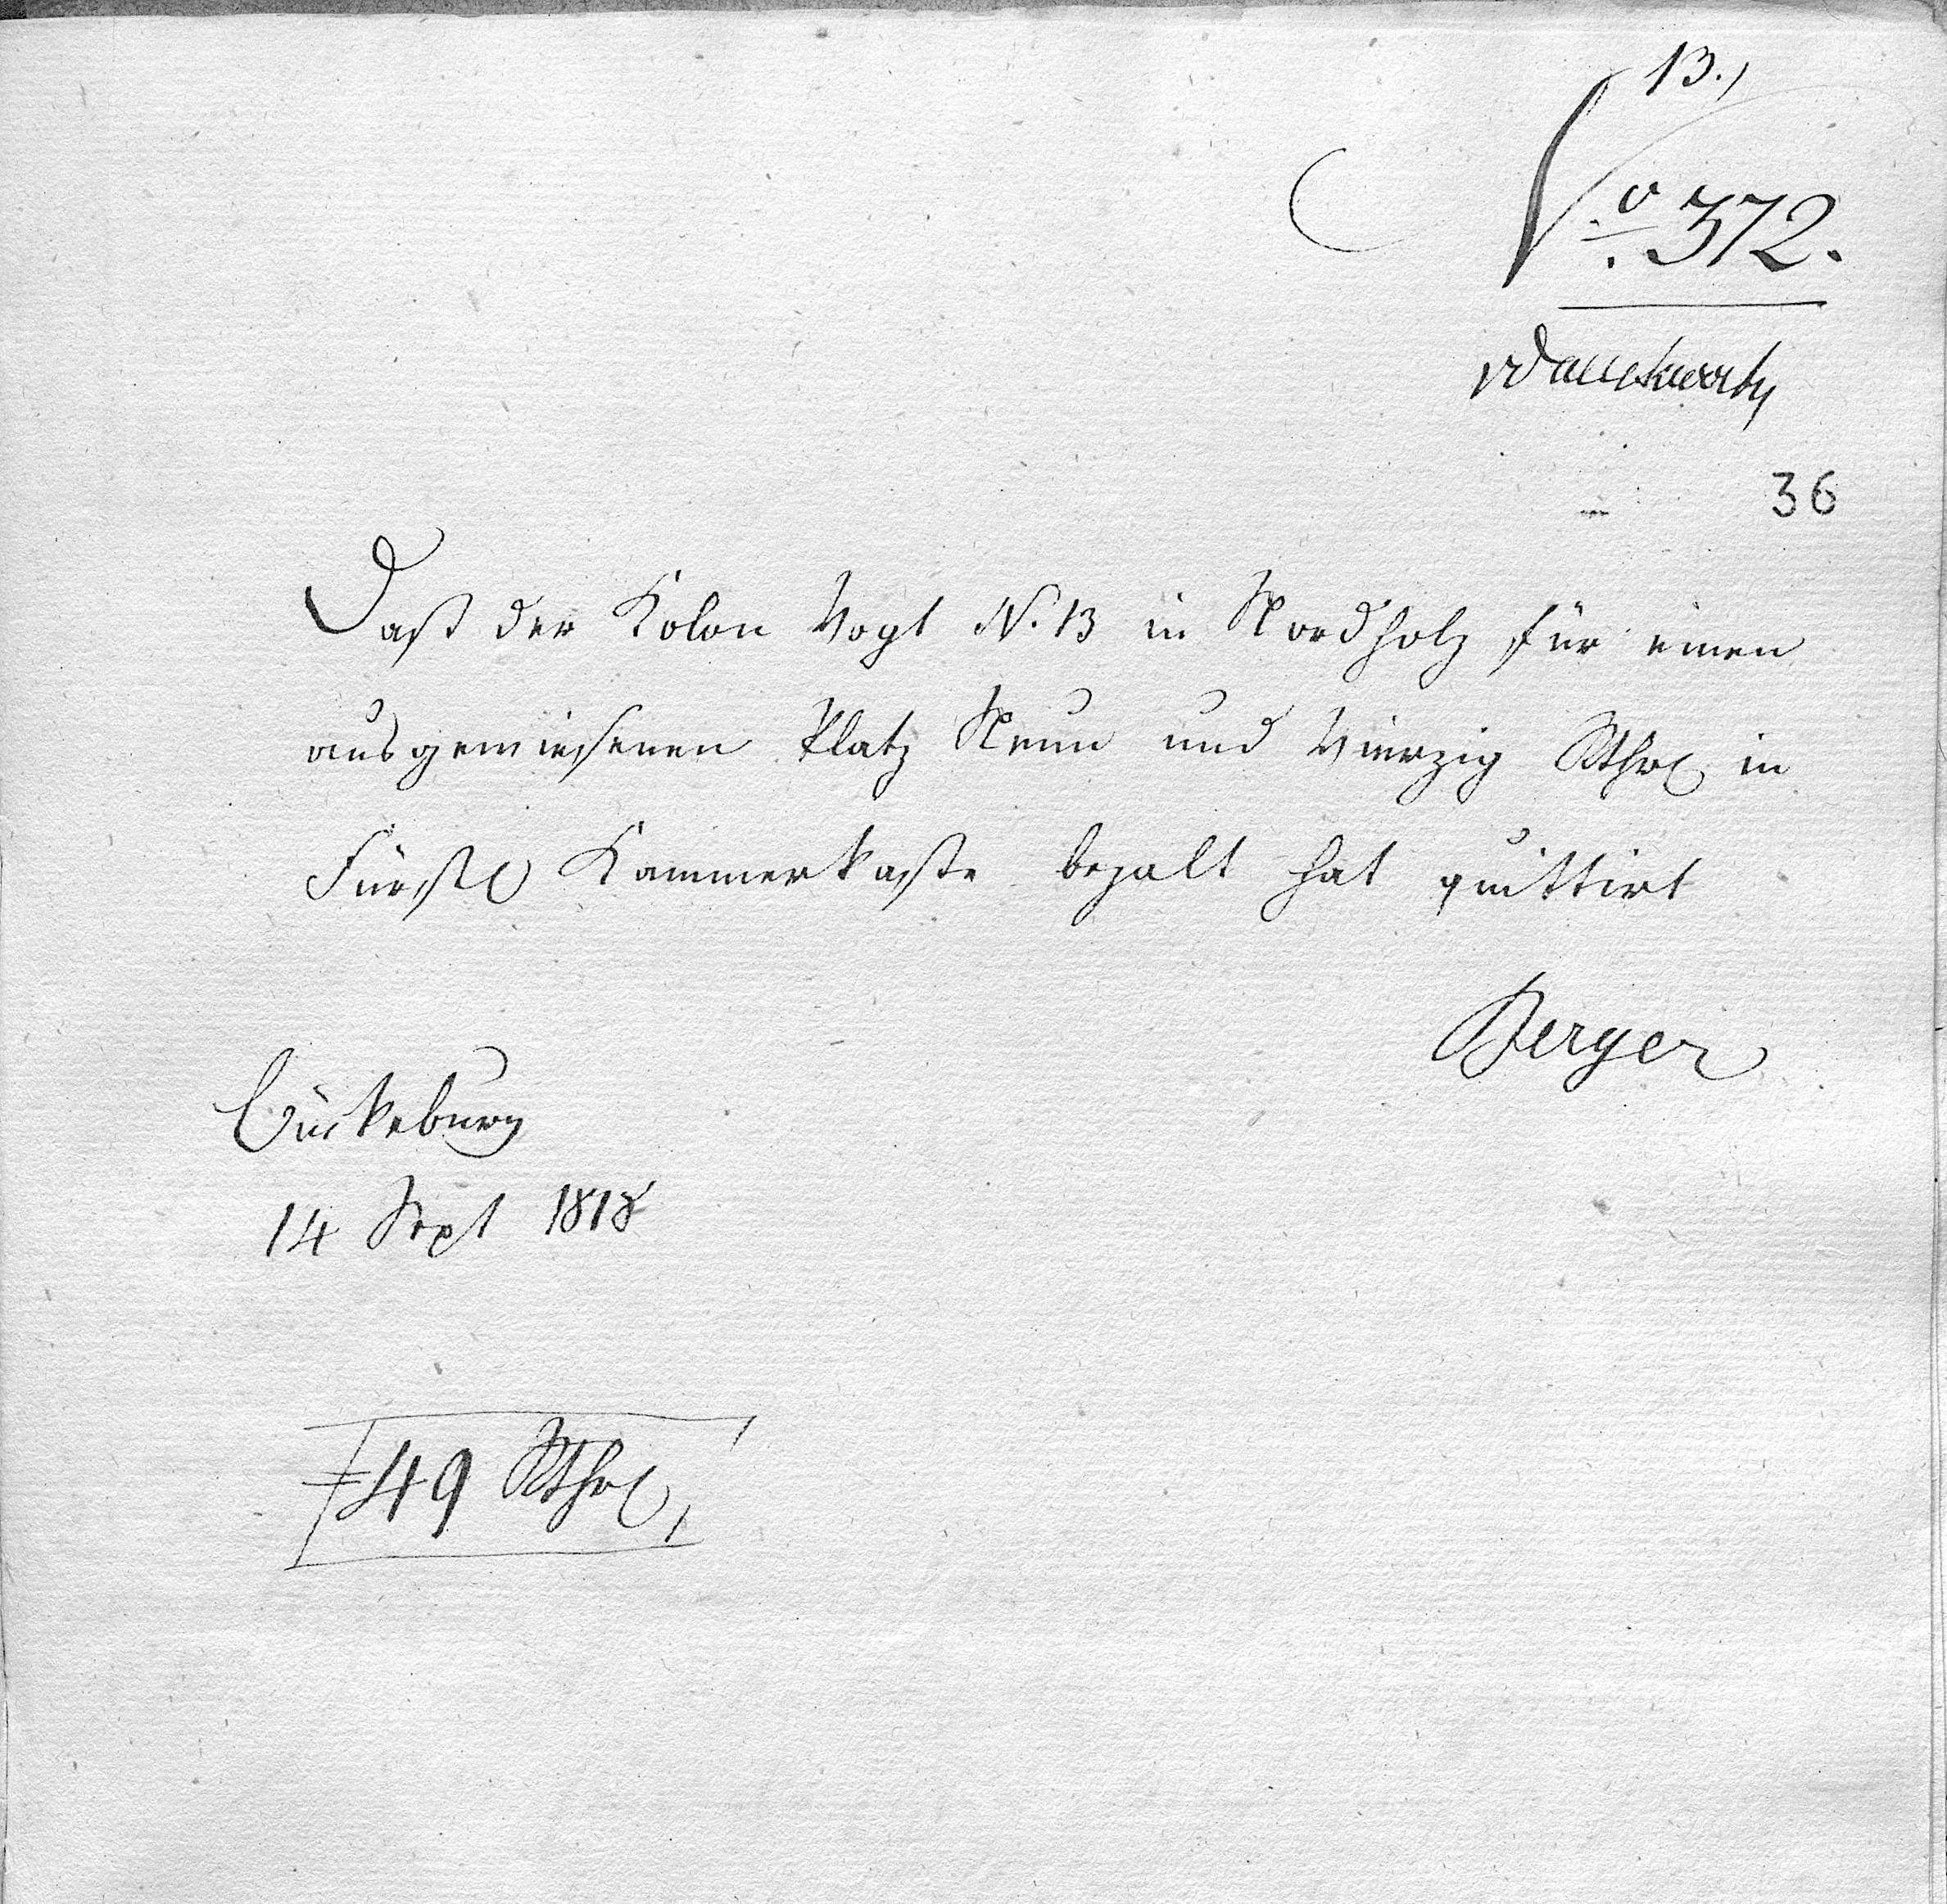 13.)
No 372.
36
Daß der Kolon Vogt N. 13 in Nordholz für einen
ausgewiesenen Platz Neun und Vierzig Rthl in
Fürstl Kammerkasse bezalt hat quittirt
Berger
Bückeburg
14 Sept 1818
49 Rthl